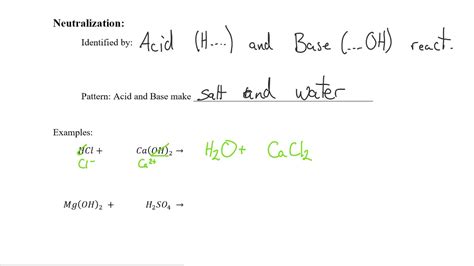 Neutralization:
Identified by: Acid (H....) and Base (....OH) react.
Pattern: Acid and Base make salt and water
Examples:
HCl + Ca(OH)₂ → H₂O + CaCl₂
Cl⁻ Ca²⁺
Mg(OH)₂ + H₂SO₄ →